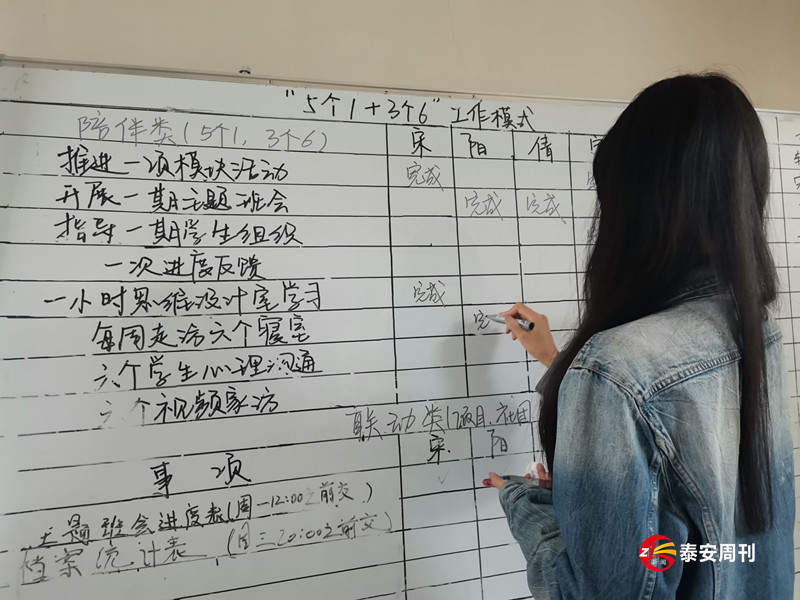 "5个1+3个6"工作模式
陪伴类(5个1、3个6) 宋 阳 倩
推进一项模块活动 完成
开展一期主题班会 完成 完成
指导一期学生组织
一次进度反馈
一小时思维设计室学习 完成
每周走访六个寝室 完
六个学生心理沟通
六个视频家访
联动类(项目、社团
事项 宋 阳
主题班会进度表(周一12:00之前交)
档案统计表 (周三20:00之前交)
泰安周刊